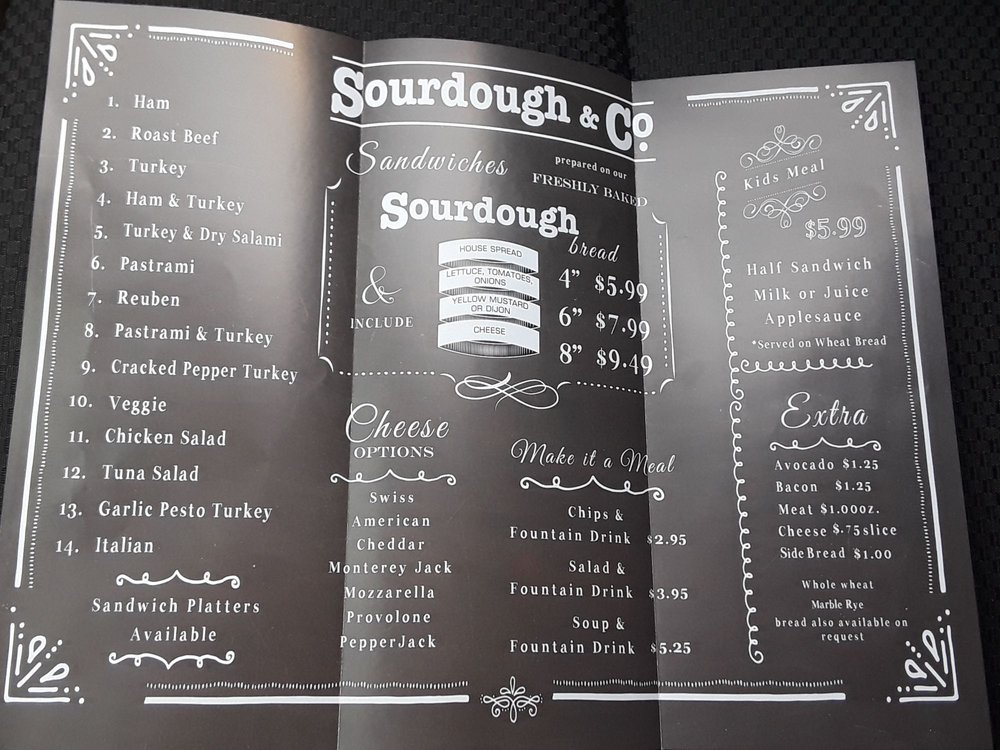 1. Ham
2. Roast Beef
3. Turkey
4. Ham & Turkey
5. Turkey & Dry Salami
6. Pastrami
7. Reuben
8. Pastrami & Turkey
9. Cracked Pepper Turkey
10. Veggie
11. Chicken Salad
12. Tuna Salad
13. Garlic Pesto Turkey
14. Italian
Sandwich Platters
Available
Sourdough & Co.
Sandwiches
prepared on our
FRESHLY BAKED
Sourdough
bread
&
INCLUDE
HOUSE SPREAD
LETTUCE, TOMATOES,
ONIONS
YELLOW MUSTARD
OR DIJON
CHEESE
4” $5.99
6” $7.99
8” $9.49
Cheese
OPTIONS
Swiss
American
Cheddar
Monterey Jack
Mozzarella
Provolone
PepperJack
Make it a Meal
Chips &
Fountain Drink $2.95
Salad &
Fountain Drink $3.95
Soup &
Fountain Drink $5.25
Kids Meal
$5.99
Half Sandwich
Milk or Juice
Applesauce
*Served on Wheat Bread
Extra
Avocado $1.25
Bacon $1.25
Meat $1.00oz.
Cheese $.75slice
Side Bread $1.00
Whole wheat
Marble Rye
bread also available on
request